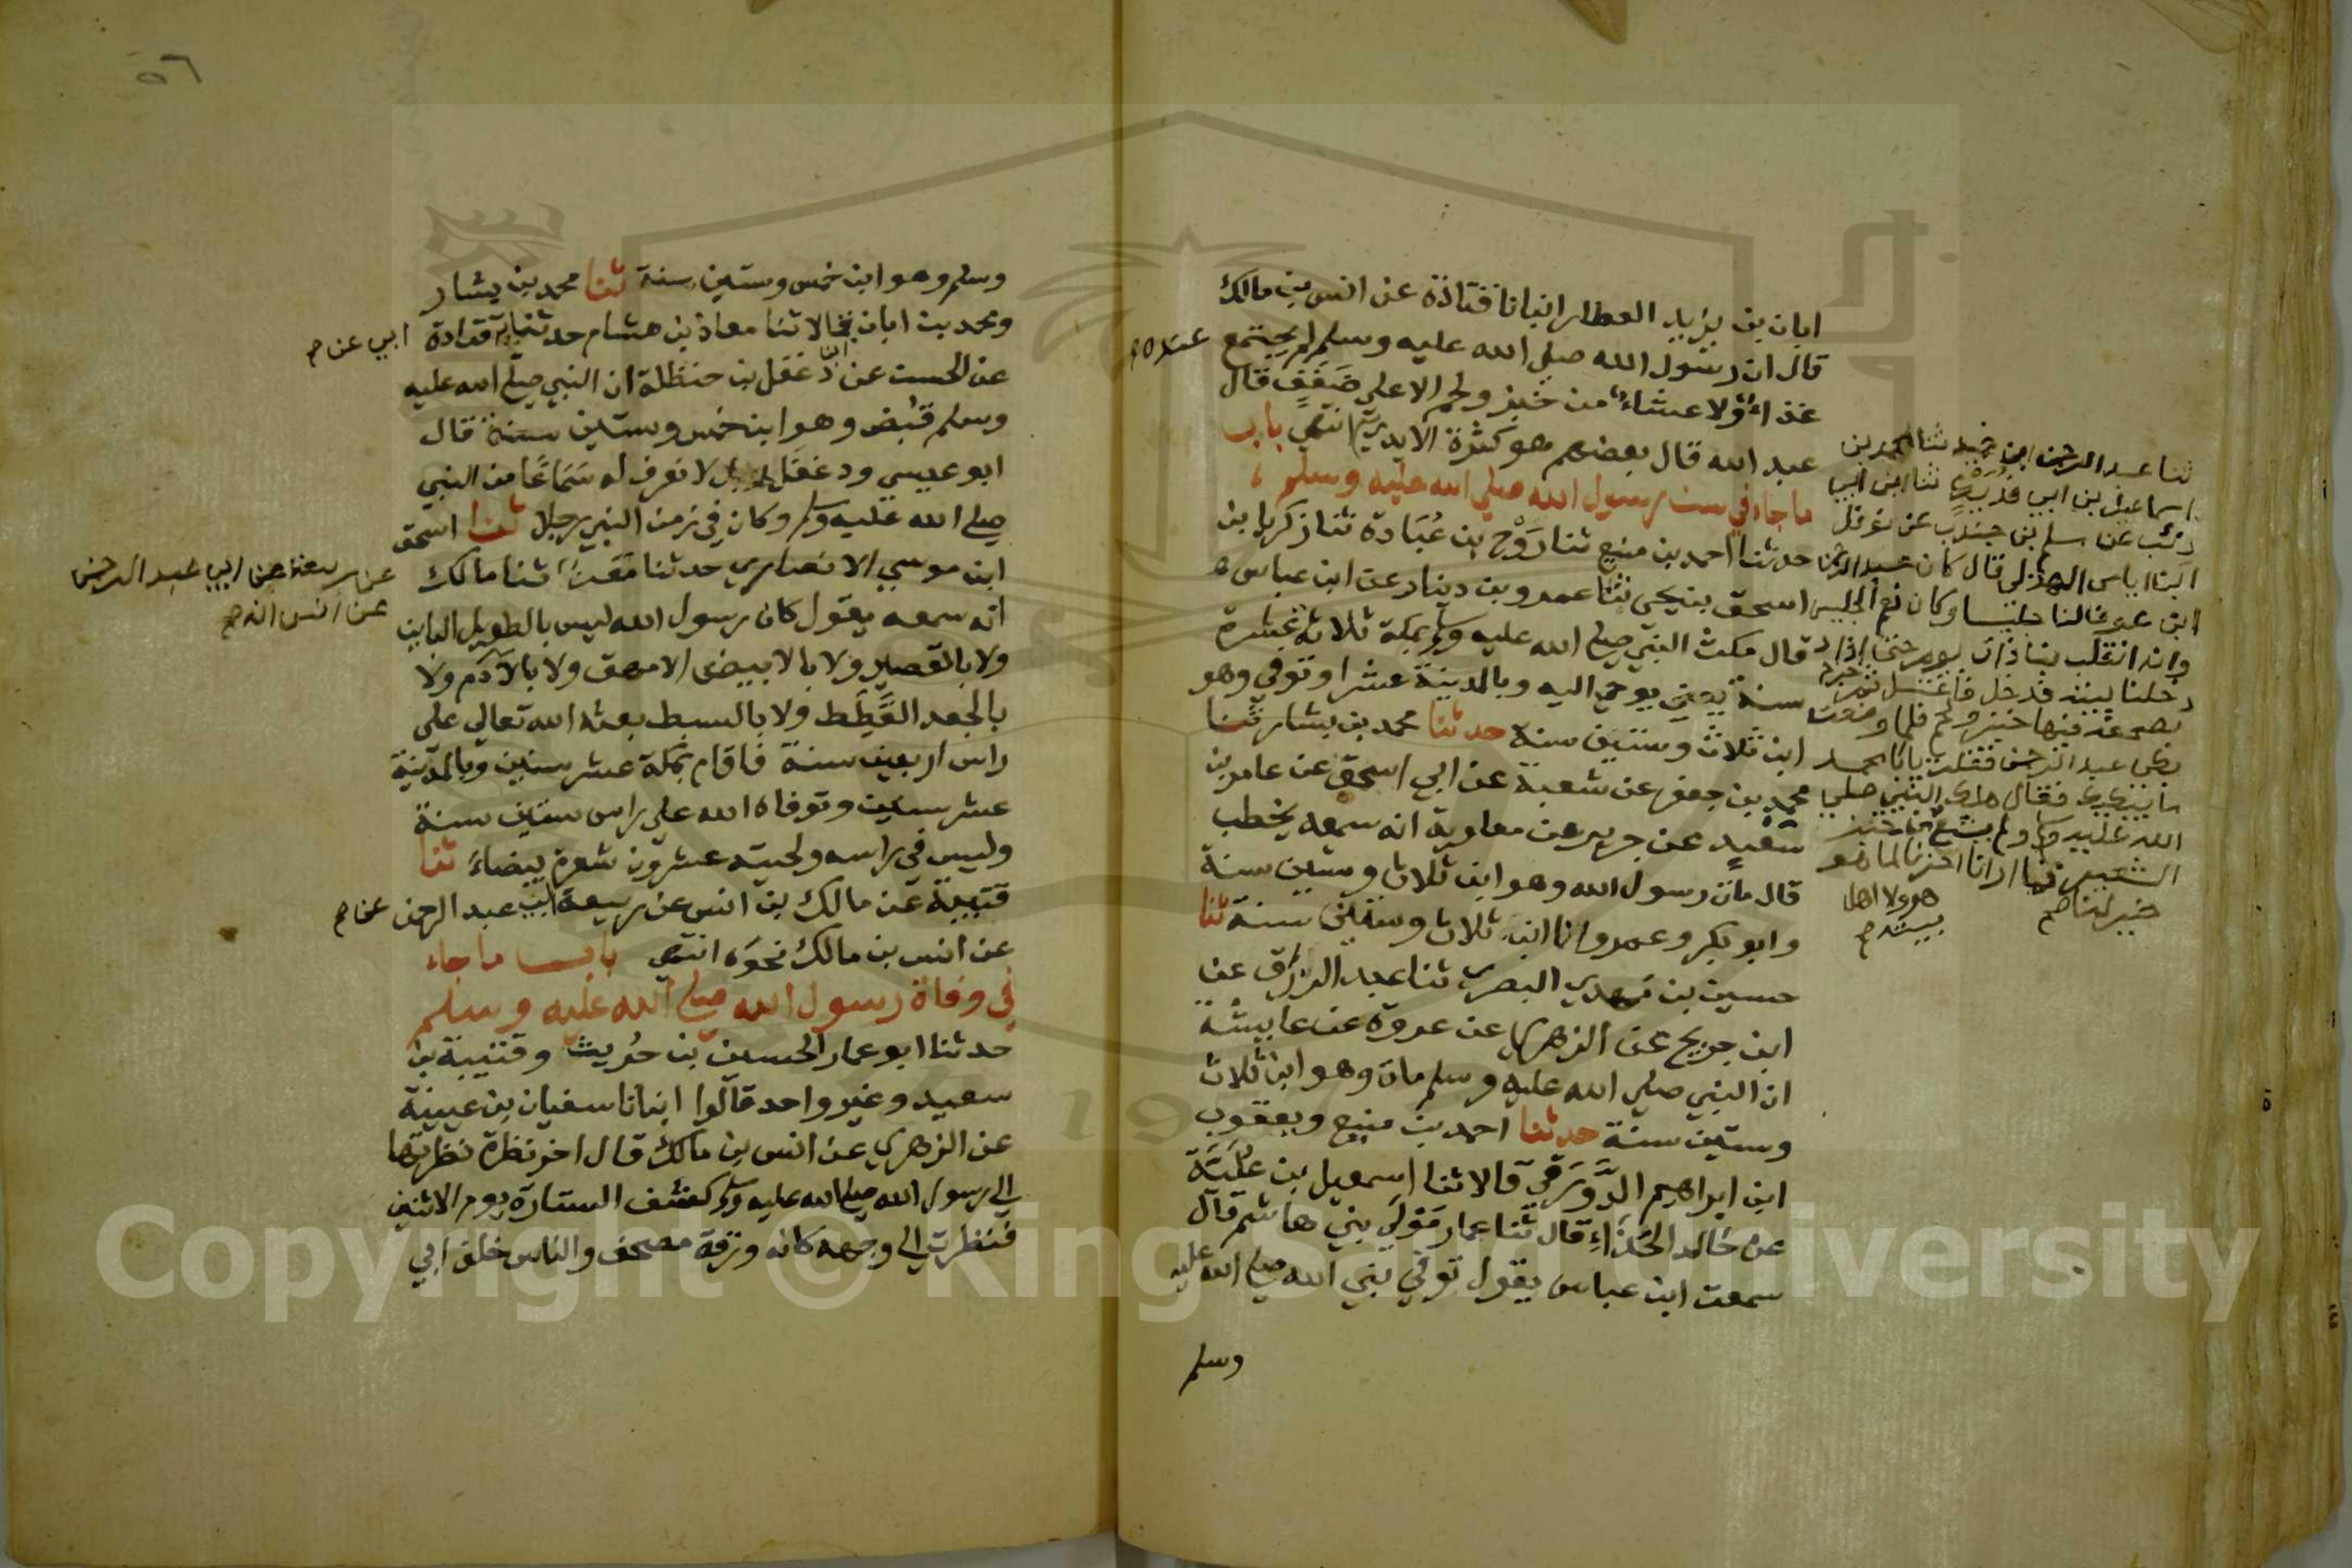 ابان بن يزيد العطار انبانا قتادة عن انس بن مالك
قال ان رسول الله صلي الله عليه وسلم لم يجتمع
عنده
غداء ولا عشاء من خبز ولحم الا علي ضفف قال
عبد الله قال بعضهم هو كثرة الايدي انتهي باب
ماجاء في سن رسول الله صلي الله عليه وسلم
حدثنا احمد بن منيع ثنا روح بن عبادة ثنا زكريا بن
اسحق بن يحيي ثنا عمرو بن دينار عن ابن عباس
قال مكث النبي صلي الله عليه وسلم بمكة ثلاثة عشرة
سنة يوحي اليه وبالمدينة عشرا وتوفي وهو
ابن ثلاث وستين سنة حدثنا محمد بن بشار ثنا
محمد بن جعفر عن شعبة عن ابي اسحق عن عامر بن
سعيد عن جرير عن معاوية انه سمعه يخطب
قال مات رسول الله وهو ابن ثلاث وستين سنة
وابو بكر وعمر وانا ابن ثلاث وستين سنة ثنا
حسين بن مهدي البصري ثنا عبد الرزاق عن
ابن جريج عن الزهري عن عروة عن عايشة
ان النبي صلي الله عليه وسلم مات وهو ابن ثلاث
وستين سنة حدثنا احمد بن منيع ويعقوب
ابن ابراهيم الدورقي قالا ثنا اسمعيل بن علية
عن خالد الحذاء قال ثنا عمار مولي بني هاشم قال
سمعت ابن عباس يقول توفي نبي الله صلي الله عليه
وسلم
ثنا عبد الرحمن ابن حميد ثنا محمد بن
اسماعيل بن ابي فديك ثنا ابن ابي
ذئب عن مسلم بن جندب عن نوفل
ابن اياس الهذلي قال كان عبد الرحمن
ابن عوف لنا جليسا وكان نعم الجليس
وانه انقلب بنا ذات يوم حتي اذا
دخلنا بيته فدخل فاغتسل ثم خرج
بصحفة فيها خبز ولحم فلما وضعت
بكي عبد الرحمن فقلت يابا محمد
ما يبكيك فقال هلك النبي صلي
الله عليه وسلم ولم يشبع من خبز
الشعير فما ارانا اخرنا لما هو
خير لنا صح
هو ولا اهل
بيته صح
٥٦
وسلم وهو ابن خمس وستين سنة ثنا محمد بن بشار
ومحمد بن ابان قالا ثنا معاذ بن هشام حدثنا قتادة
ابي عن صح
عن الحسن عن دغفل بن حنظلة ان النبي صلي الله عليه
وسلم قبض وهو ابن خمس وستين سنة قال
ابو عيسي ودغفل لا نعرف له سماعا من النبي
صلي الله عليه وسلم وكان في زمن النبي رجلا ثنا اسحق
ابن موسي الانصاري حدثنا معن ثنا مالك
عن ربيعة عن ابي عبد الرحمن
عن انس انه صح
انه سمعه يقول كان رسول الله ليس بالطويل الباين
ولا بالقصير ولا بالابيض الامهق ولا بالآدم ولا
بالجعد القطط ولا بالسبط بعثه الله تعالي علي
راس اربعين سنة فاقام بمكة عشر سنين وبالمدينة
عشر سنين وتوفاه الله علي راس ستين سنة
وليس في راسه ولحيته عشرون شعرة بيضاء ثنا
قتيبة عن مالك بن انس عن ربيعة ابن عبد الرحمن
عن صح
عن انس بن مالك نحوه انتهي باب ما جاء
في وفاة رسول الله صلي الله عليه وسلم
حدثنا ابو عمار الحسين بن حريث وقتيبة بن
سعيد وغير واحد قالوا انبانا سفيان بن عيينة
عن الزهري عن انس بن مالك قال اخر نظرة نظرتها
الي رسول الله صلي الله عليه وسلم كشف الستارة يوم الاثنين
فنظرت الي وجهه كانه ورقة مصحف والناس خلف ابي
Copyright © King Saud University